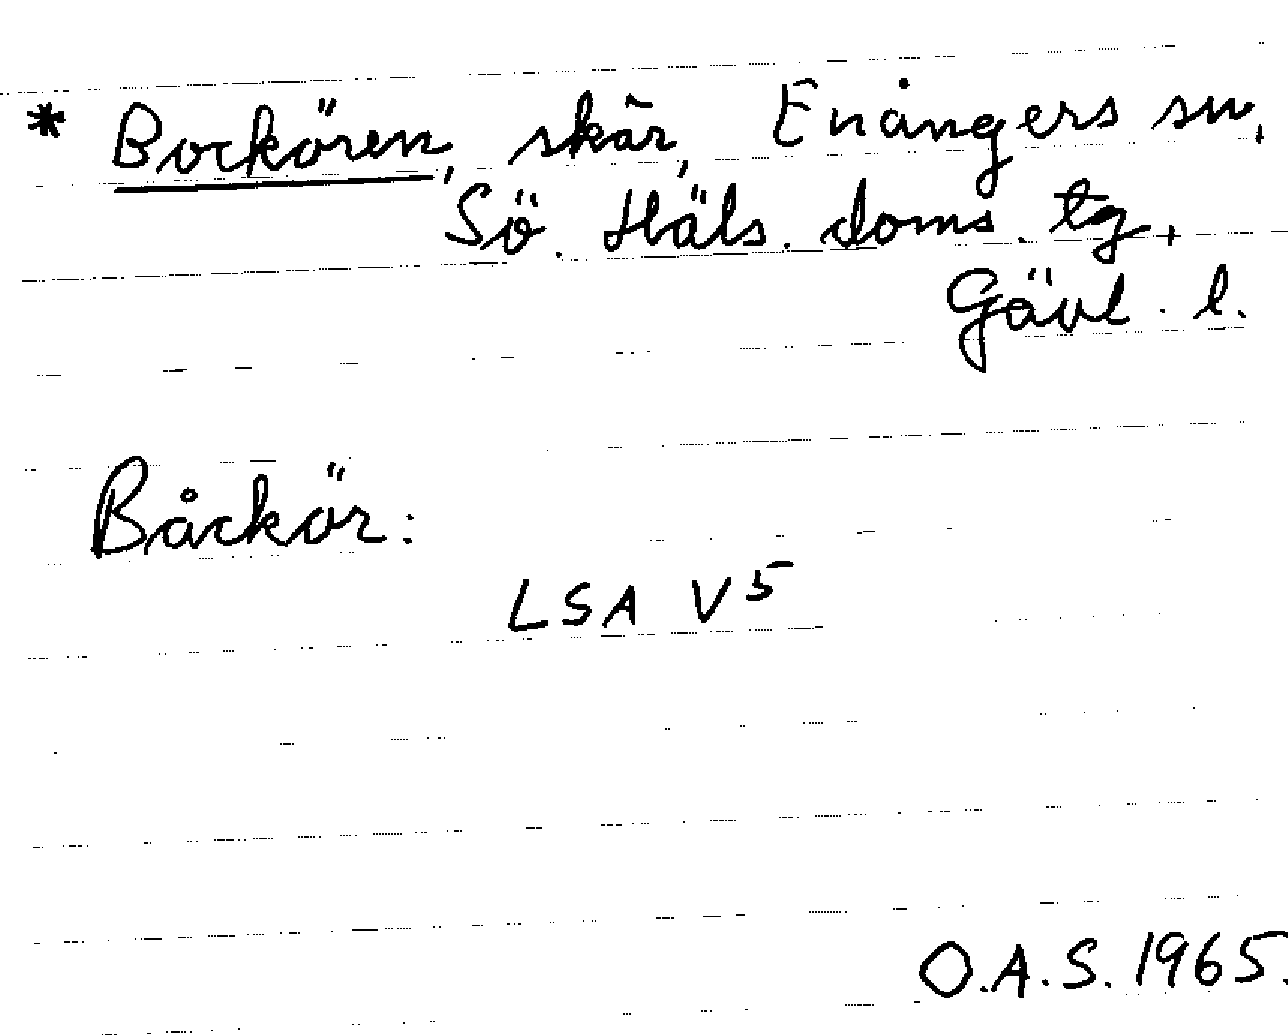 * Bockören, skär, Enångers sn,
Sö. Häls. doms. tg,
Gävl. l.
Båckör:
LSA V5
O.A.S. 1965.